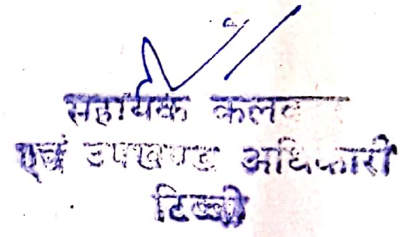 सहायक कलक्टर
एवं उपखण्ड अधिकारी
टिब्बी